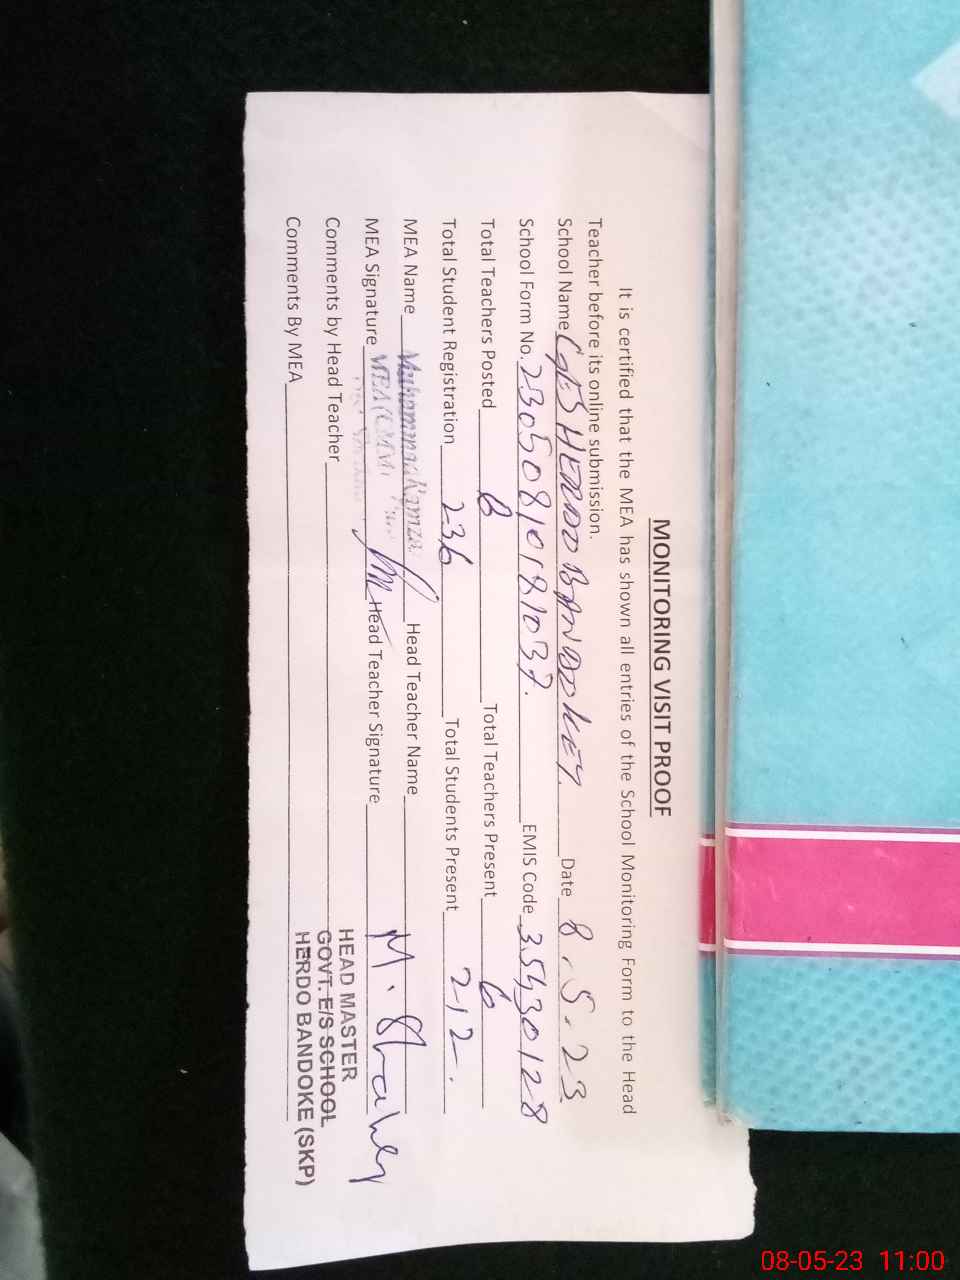 MONITORING VISIT PROOF
It is certified that the MEA has shown all entries of the School Monitoring Form to the Head
Teacher before its online submission.
School Name GES HERDO BANDOKEY. Date 8.5.23
School Form No. EMIS Code 35430128
Total Teachers Posted Total Teachers Present 6
Total Student Registration 236 Total Students Present 212.
MEA Name Muhammad Hamza Head Teacher Name
MEA Signature MEA Head Teacher Signature
Comments by Head Teacher
HEAD MASTER
GOVT. E/S SCHOOL
HERDO BANDOKE (SKP)
Comments By MEA
08-05-23 11:00